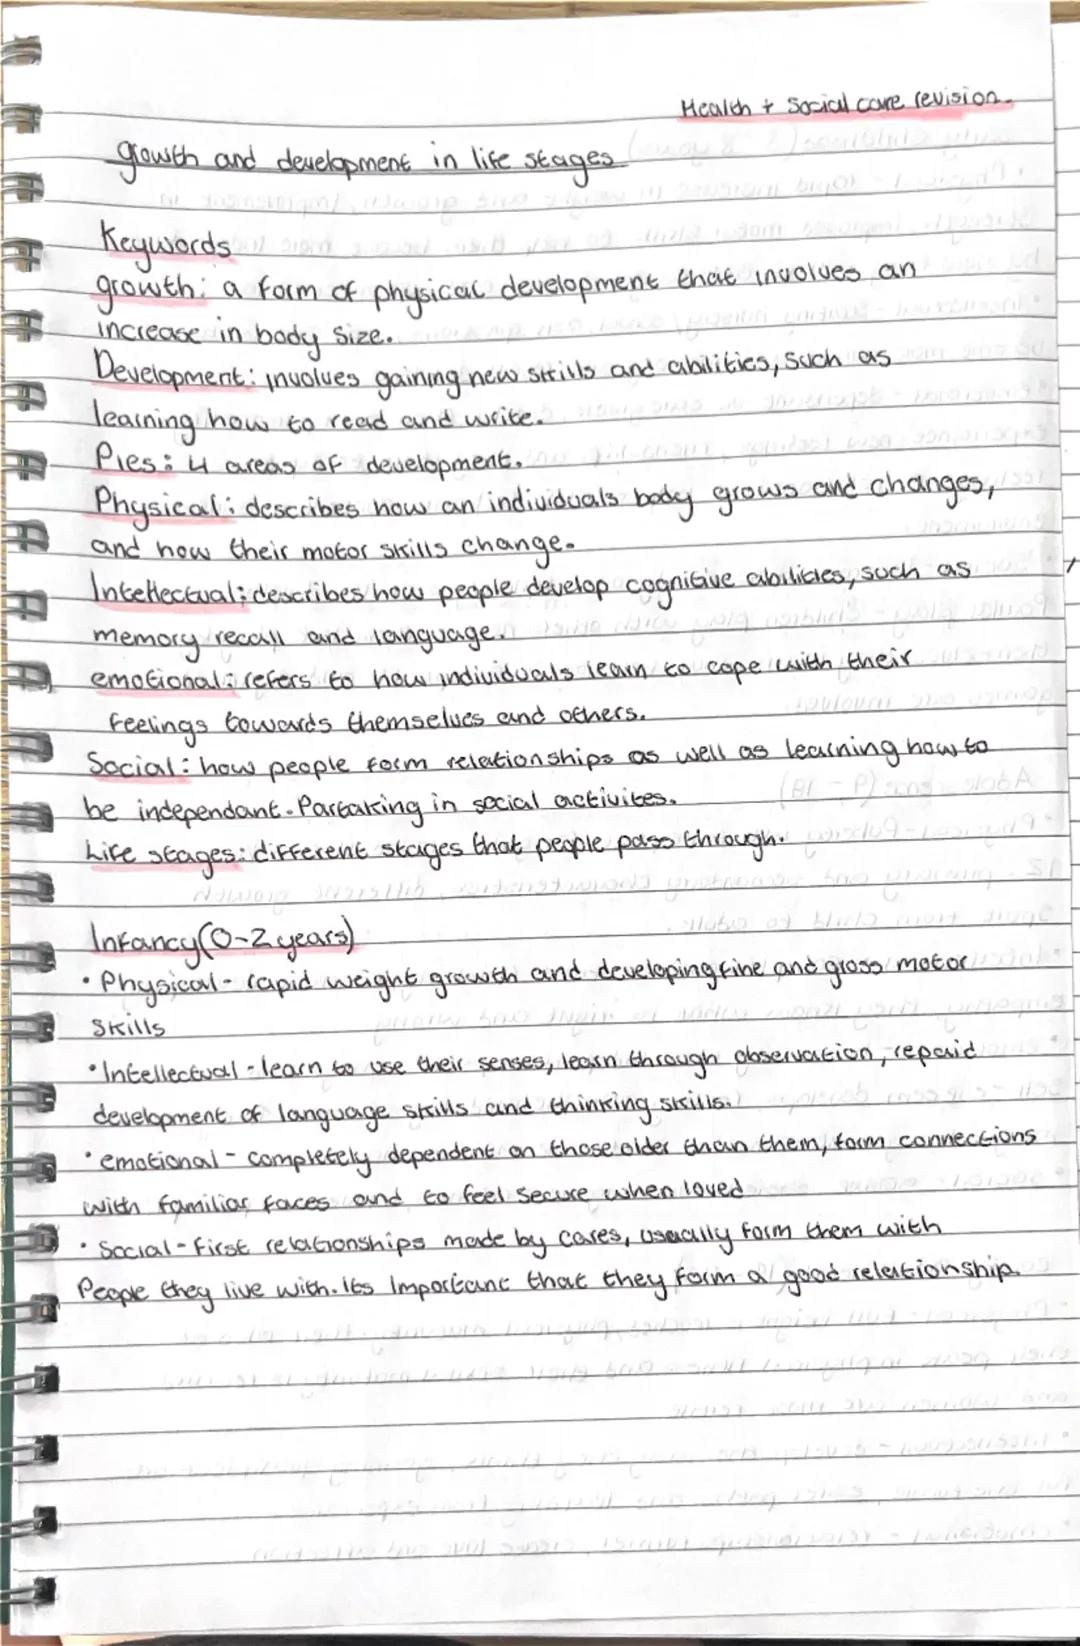 Health + Social care revision.
growth and development in life stages
Keywords
growth: a form of physical development that involves an
increase in body size.
Development: involves gaining new skills and abilities, such as
learning how to read and write.
Pies: 4 areas of development.
Physical: describes how an individuals body grows and changes,
and how their motor skills change.
Intellectual: describes how people develop cognitive abilities, such as
memory recall and language.
emotional: refers to how individuals learn to cope with their
feelings towards themselves and others.
Social: how people form relationships as well as learning how to
be independant. Partaking in social activites.
Life stages: different stages that people pass through.
Infancy (0-2 years)
• Physical - rapid weight growth and developing fine and gross motor
skills
• Intellectual - learn to use their senses, learn through observation, repaid
development of language skills and thinking skills.
• emotional - completely dependent on those older than them, form connections
with familiar faces and to feel secure when loved
• Social - First relationships made by cares, usually form them with
People they live with. Its Important that they form a good relationship.